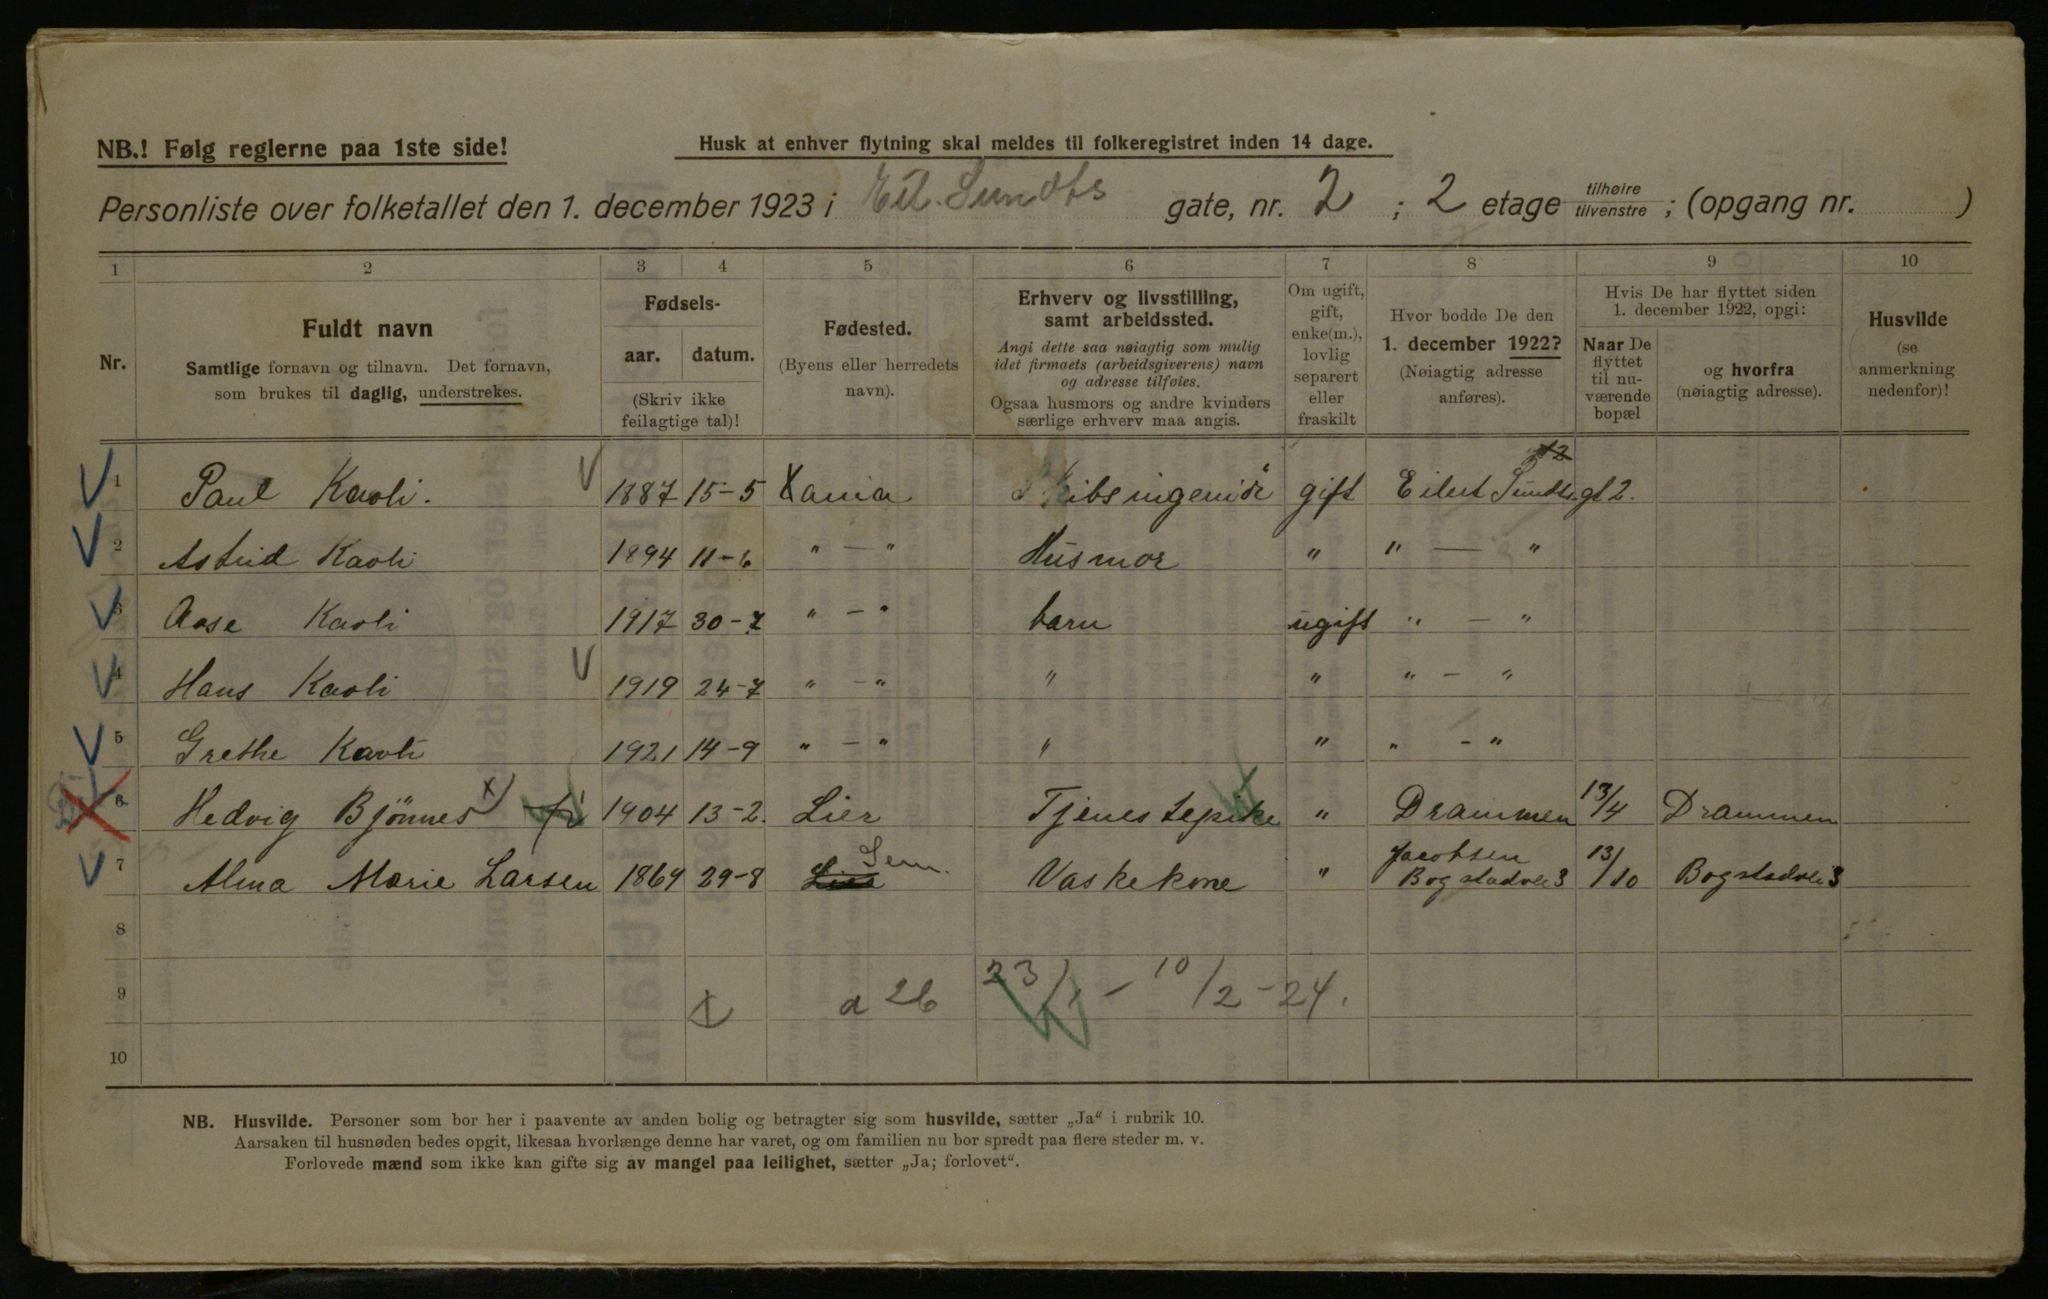 NB.! Følg reglerne paa 1ste side!
Husk at enhver flytning skal meldes til folkeregistret inden 14 dage.
Personliste over folketallet den 1. december 1923 i Eil. Sundts gate, nr. 2 ; 2 etage tilhøire tilvenstre ; (opgang nr. )
1 2 3 4 5 6 7 8 9 10
Nr.
Fuldt navn
Samtlige fornavn og tilnavn. Det fornavn,
som brukes til daglig, understrekes.
Fødsels-
aar. datum.
(Skriv ikke
feilagtige tal)!
Fødested.
(Byens eller herredets
navn).
Erhverv og livsstilling,
samt arbeidssted.
Angi dette saa nøiagtig som mulig
idet firmaets (arbeidsgiverens) navn
og adresse tilføies.
Ogsaa husmors og andre kvinders
særlige erhverv maa angis.
Om ugift,
gift,
enke(m.),
lovlig
separert
eller
fraskilt
Hvor bodde De den
1. december 1922?
(Nøiagtig adresse
anføres).
Hvis De har flyttet siden
1. december 1922, opgi:
Naar De
flyttet
til nu-
værende
bopæl
og hvorfra
(nøiagtig adresse).
Husvilde
(se
anmerkning
nedenfor)!
1 Paul Kavli. 1887 15-5 Xania Skibsingeniör gift Eilert Sundts gt 2.
2 Astrid Kavli 1894 11-6 " — " Husmor " " — "
3 Aase Kavli 1917 30-7 " — " barn ugift " — "
4 Hans Kavli 1919 24-7 " — " " " " — "
5 Grethe Kavli 1921 14-9 " — " " " " — "
6 Hedvig Bjönnes x) 1904 13-2. Lier Tjenestepike " Drammen 13/4 Drammen
7 Alma Marie Larsen 1869 29-8 Lier Sem. Vaskekone " Jacobsen Bogstadvei 3 13/10 Bogstadvei 3
8
9 a 26 23/1 - 10/2 - 24.
10
NB. Husvilde. Personer som bor her i paavente av anden bolig og betragter sig som husvilde, sætter „Ja“ i rubrik 10.
Aarsaken til husnøden bedes opgit, likesaa hvorlænge denne har varet, og om familien nu bor spredt paa flere steder m. v.
Forlovede mænd som ikke kan gifte sig av mangel paa leilighet, sætter „Ja; forlovet“.